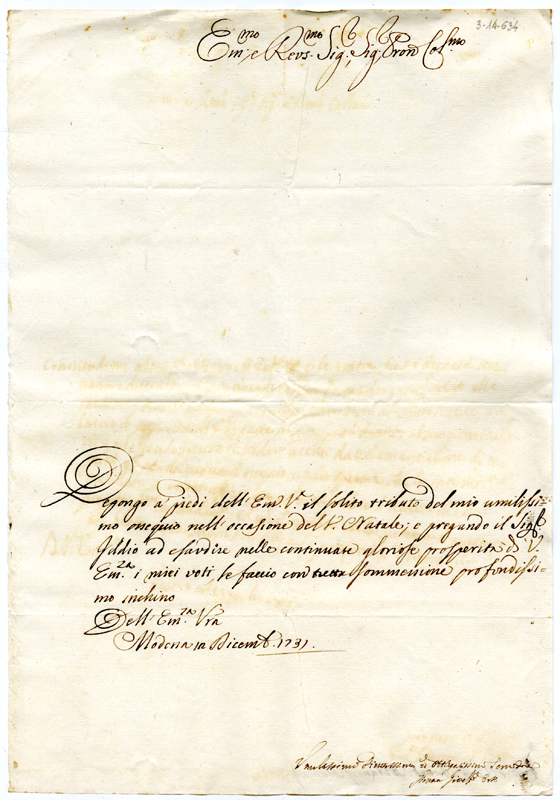 3-14-634
Em:mo e Revs.mo Sig:, Sig: Pron Col:mo
Depongo a piedi dell'Em.Va. il solito tributo del mio umilissi-
mo ossequio nell'occasione del S. Natale; e pregando il Sig.e
Iddio ad esaudire nelle continuate gloriose prosperità di V.
Em.za i miei voti le faccio con tutta sommessione profondissi-
mo inchino
Dell'Em.za Vra
Modena 12 Dicemb. 1731.
Umilissimo Divotissimo ed Obbligatissimo Servitore